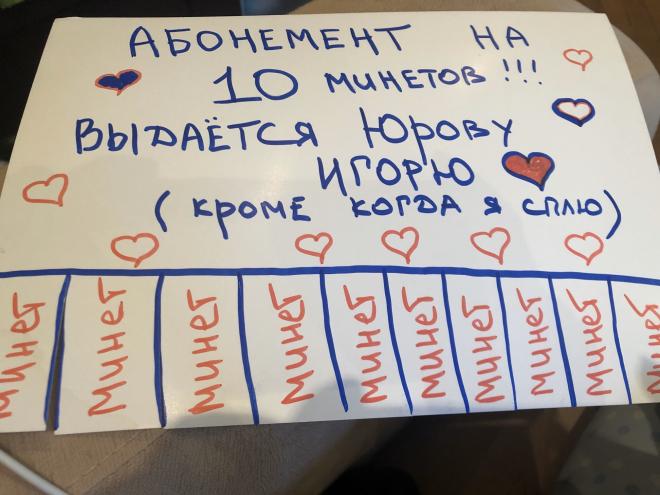 АБОНЕМЕНТ НА
10 МИНЕТОВ!!!
ВЫДАЁТСЯ ЮРОВУ
ИГОРЮ
(КРОМЕ КОГДА Я СПЛЮ)
Минет
Минет
Минет
Минет
Минет
Минет
Минет
Минет
Минет
Минет